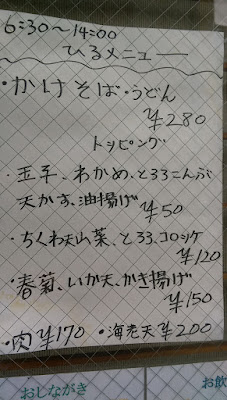 6:30〜14:00
ひるメニュー
・かけそば・うどん
¥280
トッピング
・玉子、わかめ、とろろこんぶ
天かす、油揚げ
¥50
・ちくわ天、山菜、とろろ、コロッケ
¥120
・春菊、いか天、かき揚げ
¥150
・肉 ¥170 ・海老天 ¥200
おしながき
お飲